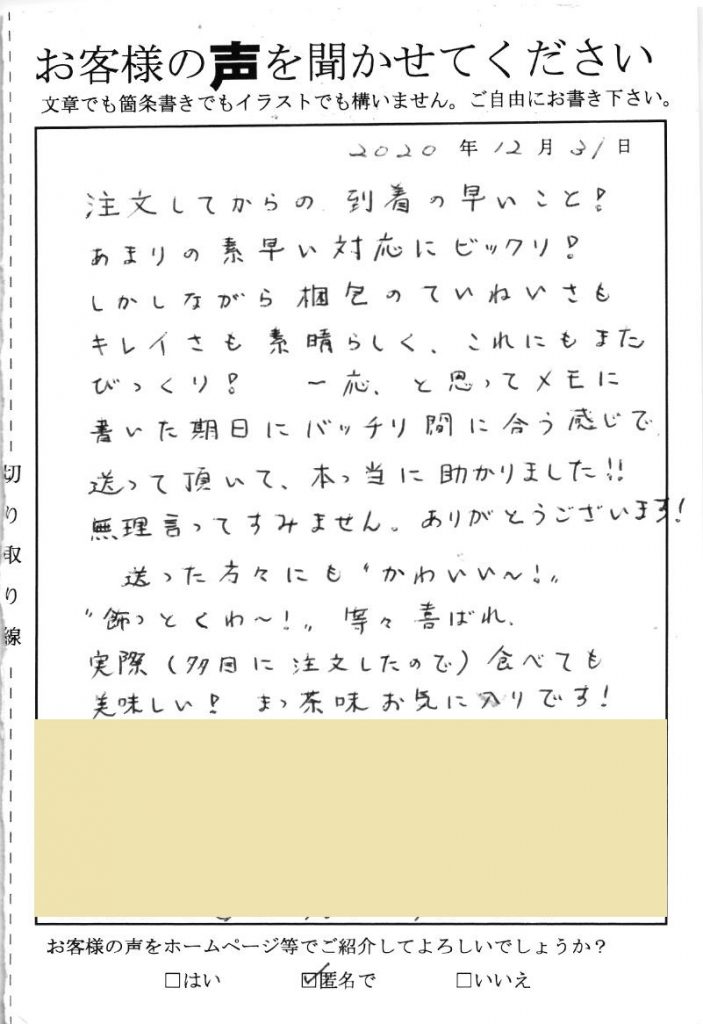 お客様の声を聞かせてください
文章でも箇条書きでもイラストでも構いません。ご自由にお書き下さい。
2020 年 12 月 31 日
注文してからの 到着の早いこと!
あまりの素早い対応にビックリ!
しかしながら梱包のていねいさも
キレイさも素晴らしく、これにもまた
びっくり! 一応、と思ってメモに
書いた期日にバッチリ間に合う感じで
送って頂いて、本っ当に助かりました!!
無理言ってすみません。ありがとうございます!
送った方々にも“かわいい〜!„
“飾っとくわ〜!„ 等々喜ばれ、
実際(多目に注文したので)食べても
美味しい! まっ茶味お気に入りです!
お客様の声をホームページ等でご紹介してよろしいでしょうか?
□はい ☑匿名で □いいえ
切り取り線